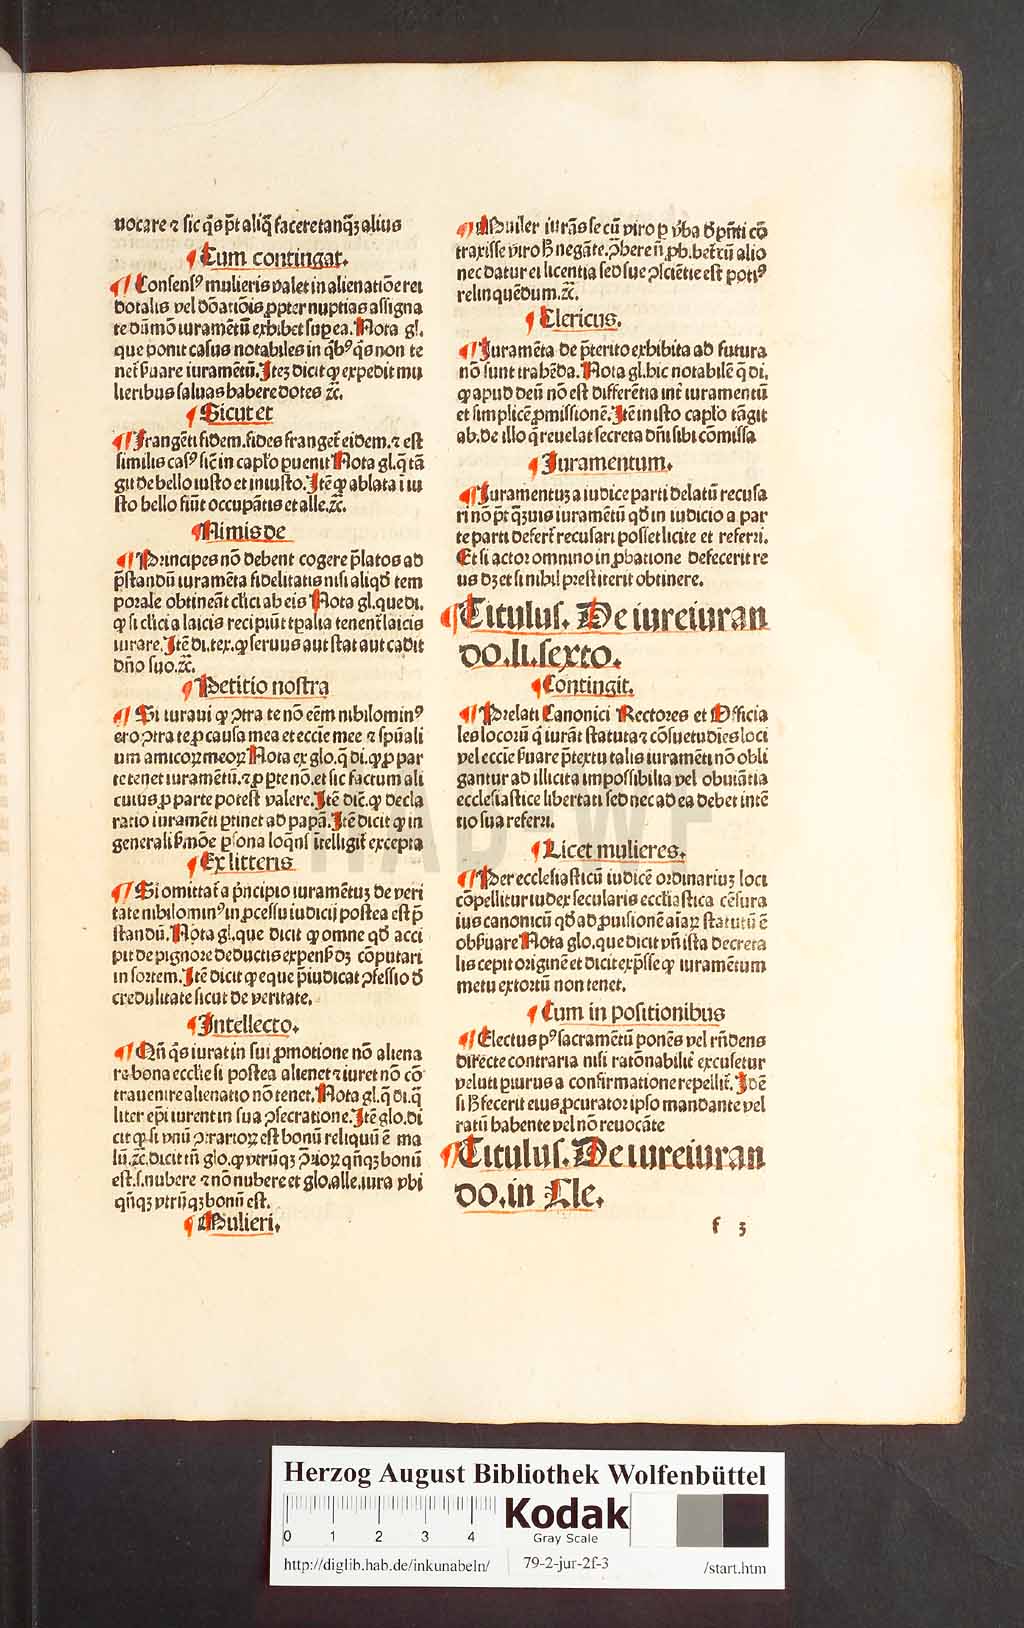 uocare ⁊ sic q̄s p̄t aliq̄ facere tanq̄ꝫ alius
¶ Cum contingat.
¶ Consensꝰ mulieris valet in alienatiōe rei
dotalis vel dōatiōis ꝓpter nuptias assigna
te dūmō iuramētū exhibet suꝑ ea. Nota gl.
que ponit casus notabiles in qͥbꝰ q̄s non te
net̄ ẜuare iuramētū. Iteꝫ dicit ꝙ expedit mu
lieribus saluas habere dotes ⁊c̄.
¶ Sicut et
¶ Frangēti fidem. fides franget̄ eidem. ⁊ est
similis casꝰ sic̄ in caplo ꝑuenit Nota gl. q̄ tā
git de bello iusto et iniusto. Itē ꝙ ablata i iu
sto bello fiūt occupātis et alle. ⁊c̄.
¶ Nimis de
¶ Principes nō debent cogere p̄latos ad
p̄standū iuramēta fidelitatis nisi aliqd̄ tem
porale obtineāt cl̄ici ab eis Nota gl. que di.
ꝙ si cl̄ici a laicis recipiūt tꝑalia tenent̄ laicis
iurare. Itē di. tex. ꝙ seruus aut stat aut cadit
dn̄o suo. ⁊c̄.
¶ Petitio nostra
¶ Si iuraui ꝙ ꝯtra te nō eēm nihilominꝰ
ero ꝯtra te ꝓ causa mea et eccie mee ⁊ spūali
um amicoꝝ meoꝝ Nota ex glo. q̄ di. ꝙ ꝓ par
te tenet iuramētū. ⁊ ꝓ ꝑte nō. et sic factum ali
cuius ꝓ parte potest valere. Itē dic̄. ꝙ decla
ratio iuramēti ꝑtinet ad papā. Itē dicit ꝙ in
generali ẜmōe ꝑsona loq̄ns ītelligit̄ excepta
¶ Ex litteris
¶ Si omittat̄ a p̄ncipio iuramētuꝫ de veri
tate nihilominꝰ in ꝓcessu iudicij postea est p̄
standū. Nota gl. que dicit ꝙ omne qd̄ acci
pit de pignore deductis expensꝭ dꝫ cōputari
in sortem. Itē dicit ꝙ eque p̄iudicat ꝯfessio d̄
credulitate sicut de veritate.
¶ Intellecto.
¶ Qn̄ q̄s iurat in sui ꝓmotione nō aliena
re bona ecclie si postea alienet ⁊ iuret nō cō
trauenire alienatio nō tenet. Nota gl. q̄ di. q̄
liter ep̄i iurent in sua ꝯsecratione. Itē glo. di
cit ꝙ si vnū ꝯtrarioꝝ est bonū reliquū ē ma
lū. ⁊c̄. dicit tn̄ glo. ꝙ vtrūqꝫ ꝯ̄rioꝝ qn̄qꝫ bonū
est. s. nubere ⁊ nō nubere et glo. alle. iura vbi
qn̄qꝫ vtrūqꝫ bonū est.
¶ Mulieri.
¶ Mulier iurās se cū viro ꝑ v̄ba d̄ p̄nti cō
traxisse viro hͦ negāte. ꝓbere n̄ pb̄. bet̄ cū alio
nec datur ei licentia sed sue ꝯsciētie est potiꝰ
relinquēdum. ⁊c̄.
¶ Clericus.
¶ Iuramēta de p̄terito exhibita ad futura
nō sunt trahēda. Nota gl. hic notabilē q̄ di.
ꝙ apud deū nō est differētia int̄ iuramentū
et simplicē ꝓmissionē. Itē in isto caplo tāgit
ab. de illo q̄ reuelat secreta dn̄i sibi cōmissa
¶ Iuramentum.
¶ Iuramentuꝫ a iudice parti delatū recusa
ri nō p̄t q̄ꝫuis iuramētū qd̄ in iudicio a par
te parti defert̄ recusari posset licite et referri.
Et si actor omnino in ꝓbatione defecerit re
us dꝫ et si nihil prestiterit obtinere.
¶ Titulus. De iureiuran
do. li. sexto.
¶ Contingit.
¶ Prelati Canonici Rectores et Officia
les locorū q̄ iurāt statuta ⁊ cōsuetudies loci
vel eccīe ẜuare p̄textu talis iuramēti nō obli
gantur ad illicita impossibilia vel obuiātia
ecclesiastice libertati sed nec ad ea debet intē
tio sua referri.
¶ Licet mulieres.
¶ Per ecclesiasticū iudicē ordinariuꝫ loci
cōpellitur iudex secularis ecclīastica cēsura
ius canonicū qd̄ ad ꝓuisionē aīaꝝ statutū ē
obẜuare Nota glo. que dicit vn̄ ista decreta
lis cepit originē et dicit exp̄sse ꝙ iuramētum
metu extortū non tenet.
¶ Cum in positionibus
¶ Electus pꝰ sacramētū ponēs vel rn̄dens
directe contraria nisi ratōnabilit̄ excusetur
velut ꝑiurus a confirmatione repellit̄. Idē
si hͦ fecerit eius ꝓcurator ipso mandante vel
ratū habente vel nō reuocāte
¶ Titulus. De iureiuran
do. in Cle.
f 3
HAB-WF
Herzog August Bibliothek Wolfenbüttel
0 1 2 3 4
Kodak
Gray Scale
http://diglib.hab.de/inkunabeln/ 79-2-jur-2f-3 /start.htm